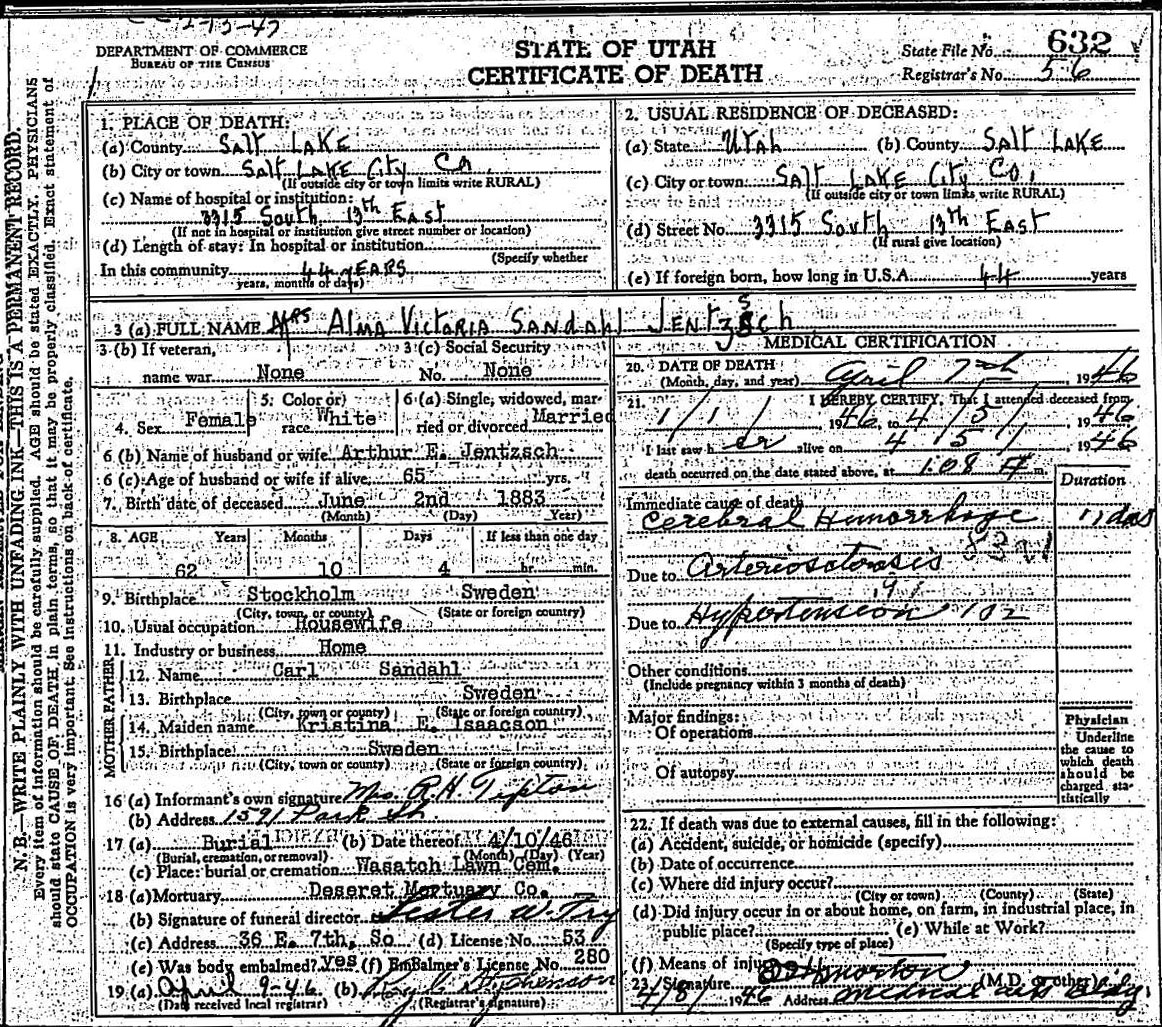 2-13-47
DEPARTMENT OF COMMERCE
BUREAU OF THE CENSUS
STATE OF UTAH
CERTIFICATE OF DEATH
State File No. 632
Registrar's No. 56
N. B.—WRITE PLAINLY WITH UNFADING INK—THIS IS A PERMANENT RECORD.
Every item of information should be carefully supplied. AGE should be stated EXACTLY. PHYSICIANS
should state CAUSE OF DEATH in plain terms, so that it may be properly classified. Exact statement of
OCCUPATION is very important. See instructions on back of certificate.
1. PLACE OF DEATH:
(a) County SALT LAKE
(b) City or town SALT LAKE City Co.
(If outside city or town limits write RURAL)
(c) Name of hospital or institution:
3315 South 13th East
(If not in hospital or institution give street number or location)
(d) Length of stay: In hospital or institution
(Specify whether
In this community 44 yEARS
years, months or days)
2. USUAL RESIDENCE OF DECEASED:
(a) State UTAH (b) County SALT LAKE
(c) City or town SALT LAKE City Co.
(If outside city or town limits write RURAL)
(d) Street No. 3315 South 13th East
(If rural give location)
(e) If foreign born, how long in U.S.A. 44 years
3 (a) FULL NAME MRS ALMA VICTORIA SANDAHL JENTZSCH
3 (b) If veteran, 3 (c) Social Security
name war None No. None
4. Sex Female 5. Color or race White 6 (a) Single, widowed, married or divorced Married
6 (b) Name of husband or wife Arthur E. Jentzsch
6 (c) Age of husband or wife if alive 65 yrs.
7. Birth date of deceased June 2nd 1883
(Month) (Day) (Year)
8. AGE Years Months Days If less than one day
62 10 4 hr. min.
9. Birthplace Stockholm Sweden
(City, town, or county) (State or foreign country)
10. Usual occupation Housewife
11. Industry or business Home
FATHER
12. Name Carl Sandahl
13. Birthplace Sweden
(City, town or county) (State or foreign country)
MOTHER
14. Maiden name Kristina E. Isaacson
15. Birthplace Sweden
(City, town or county) (State or foreign country)
16 (a) Informant's own signature Mrs. R.H. Tipton
(b) Address 1521 Park St.
17 (a) Burial (b) Date thereof 4/10/46
(Burial, cremation, or removal) (Month) (Day) (Year)
(c) Place: burial or cremation Wasatch Lawn Cem.
18 (a) Mortuary Deseret Mortuary Co.
(b) Signature of funeral director Lester W. Fry
(c) Address 36 E. 7th, So (d) License No. 53
(e) Was body embalmed? yes (f) Embalmer's License No. 280
19 (a) April 9-46 (b)
(Date received local registrar) (Registrar's signature)
MEDICAL CERTIFICATION
20. DATE OF DEATH
(Month, day, and year) April 7th, 1946
21. I HEREBY CERTIFY, That I attended deceased from
1/1/ 1946, to 4/5/, 1946
I last saw her alive on 4/5/, 1946
death occurred on the date stated above, at 1:08 A m.
Duration
Immediate cause of death
Cerebral Hemorrhage 11 das
Due to
Due to Hypertension 102
Other conditions
(Include pregnancy within 3 months of death)
Major findings:
Of operations
Of autopsy
Physician
Underline
the cause to
which death
should be
charged sta-
tistically
22. If death was due to external causes, fill in the following:
(a) Accident, suicide, or homicide (specify)
(b) Date of occurrence
(c) Where did injury occur?
(City or town) (County) (State)
(d) Did injury occur in or about home, on farm, in industrial place, in
public place? (e) While at Work?
(Specify type of place)
(f) Means of injury
23. Signature (M.D. or other)
4/8/ 1946 Address Medical Arts Bldg.